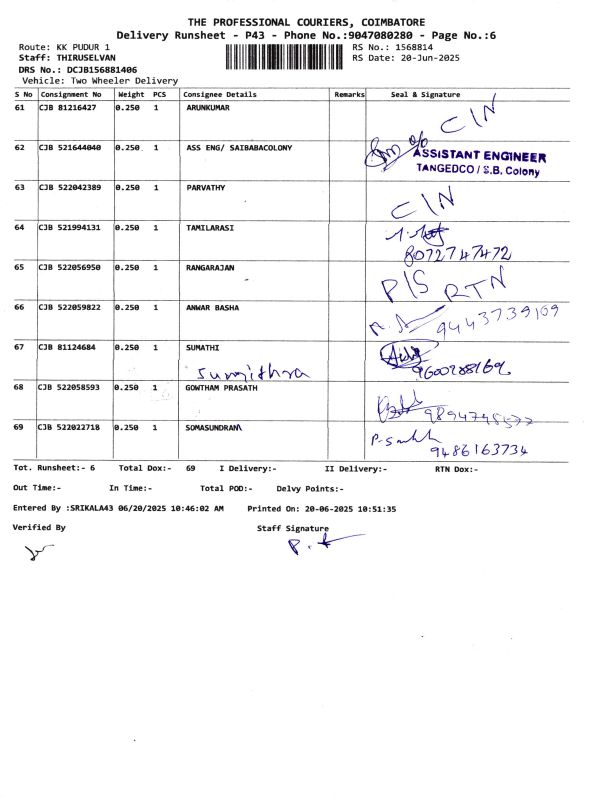 THE PROFESSIONAL COURIERS, COIMBATORE
Delivery Runsheet - P43 - Phone No.:9047080280 - Page No.:6
Route: KK PUDUR 1 RS No.: 1568814
Staff: THIRUSELVAN RS Date: 20-Jun-2025
DRS No.: DCJB156881406
Vehicle: Two Wheeler Delivery
S No Consignment No Weight PCS Consignee Details Remarks Seal & Signature
61 CJB 81216427 0.250 1 ARUNKUMAR C/N
62 CJB 521644040 0.250 1 ASS ENG/ SAIBABACOLONY
ASSISTANT ENGINEER
TANGEDCO / S.B. Colony
63 CJB 522042389 0.250 1 PARVATHY C/N
64 CJB 521994131 0.250 1 TAMILARASI
8072747472
65 CJB 522056950 0.250 1 RANGARAJAN P/S RTN
66 CJB 522059822 0.250 1 ANWAR BASHA 9443739109
67 CJB 81124684 0.250 1 SUMATHI
Sumithra
68 CJB 522058593 0.250 1 GOWTHAM PRASATH
69 CJB 522022718 0.250 1 SOMASUNDRAM
9486163734
Tot. Runsheet:- 6 Total Dox:- 69 I Delivery:- II Delivery:- RTN Dox:-
Out Time:- In Time:- Total POD:- Delvy Points:-
Entered By :SRIKALA43 06/20/2025 10:46:02 AM Printed On: 20-06-2025 10:51:35
Verified By Staff Signature